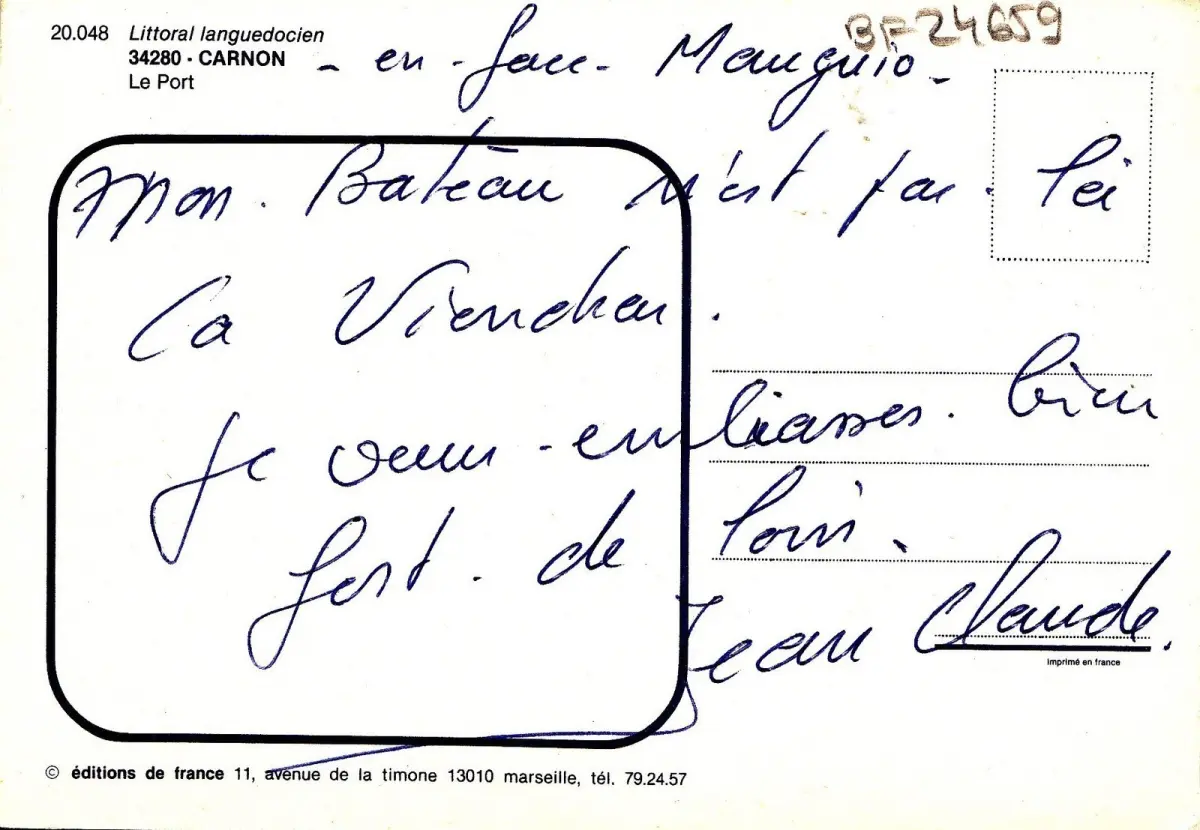 BF24659
20.048 Littoral languedocien
34280 - CARNON
Le Port
- en - face - Mauguio -
Mon. Bateau n'est pas. là
Ca Viendra.
Je vous - embrasses. bien
fort. de loin.
Jean Claude.
Imprimé en france
© éditions de france 11, avenue de la timone 13010 marseille, tél. 79.24.57